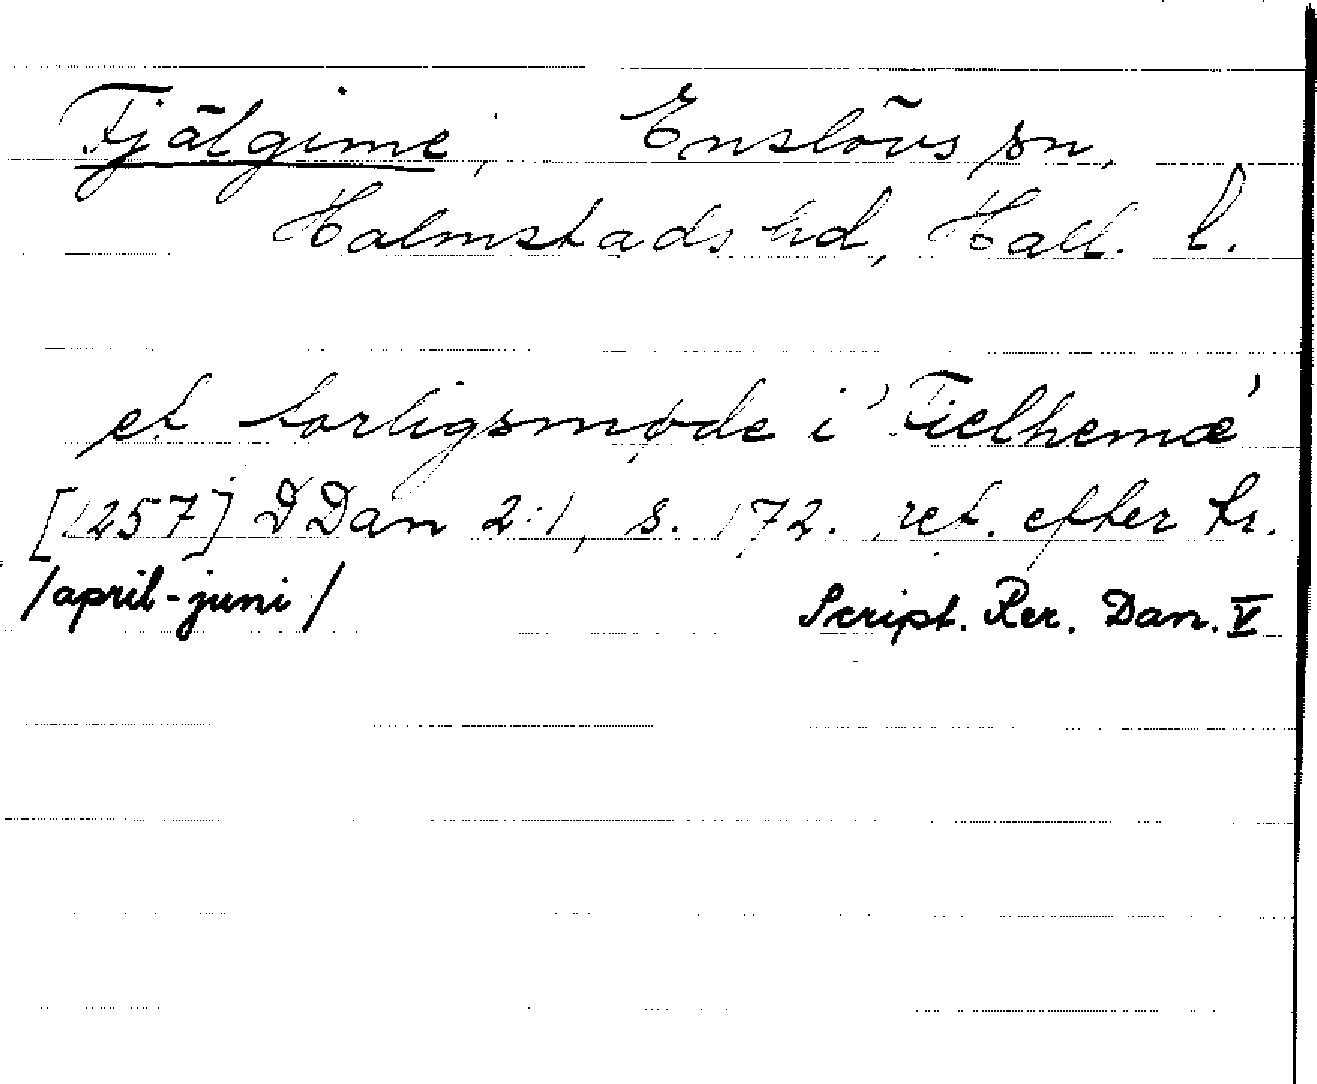 Fjälgime, Enslövs sn,
Halmstads hd, Hall. l.
et forligsmøde i 'Fielhemæ'
[1257] DDan 2:1, s. 172. ret. efter tr.
/april-juni/ Script. Rer. Dan. V